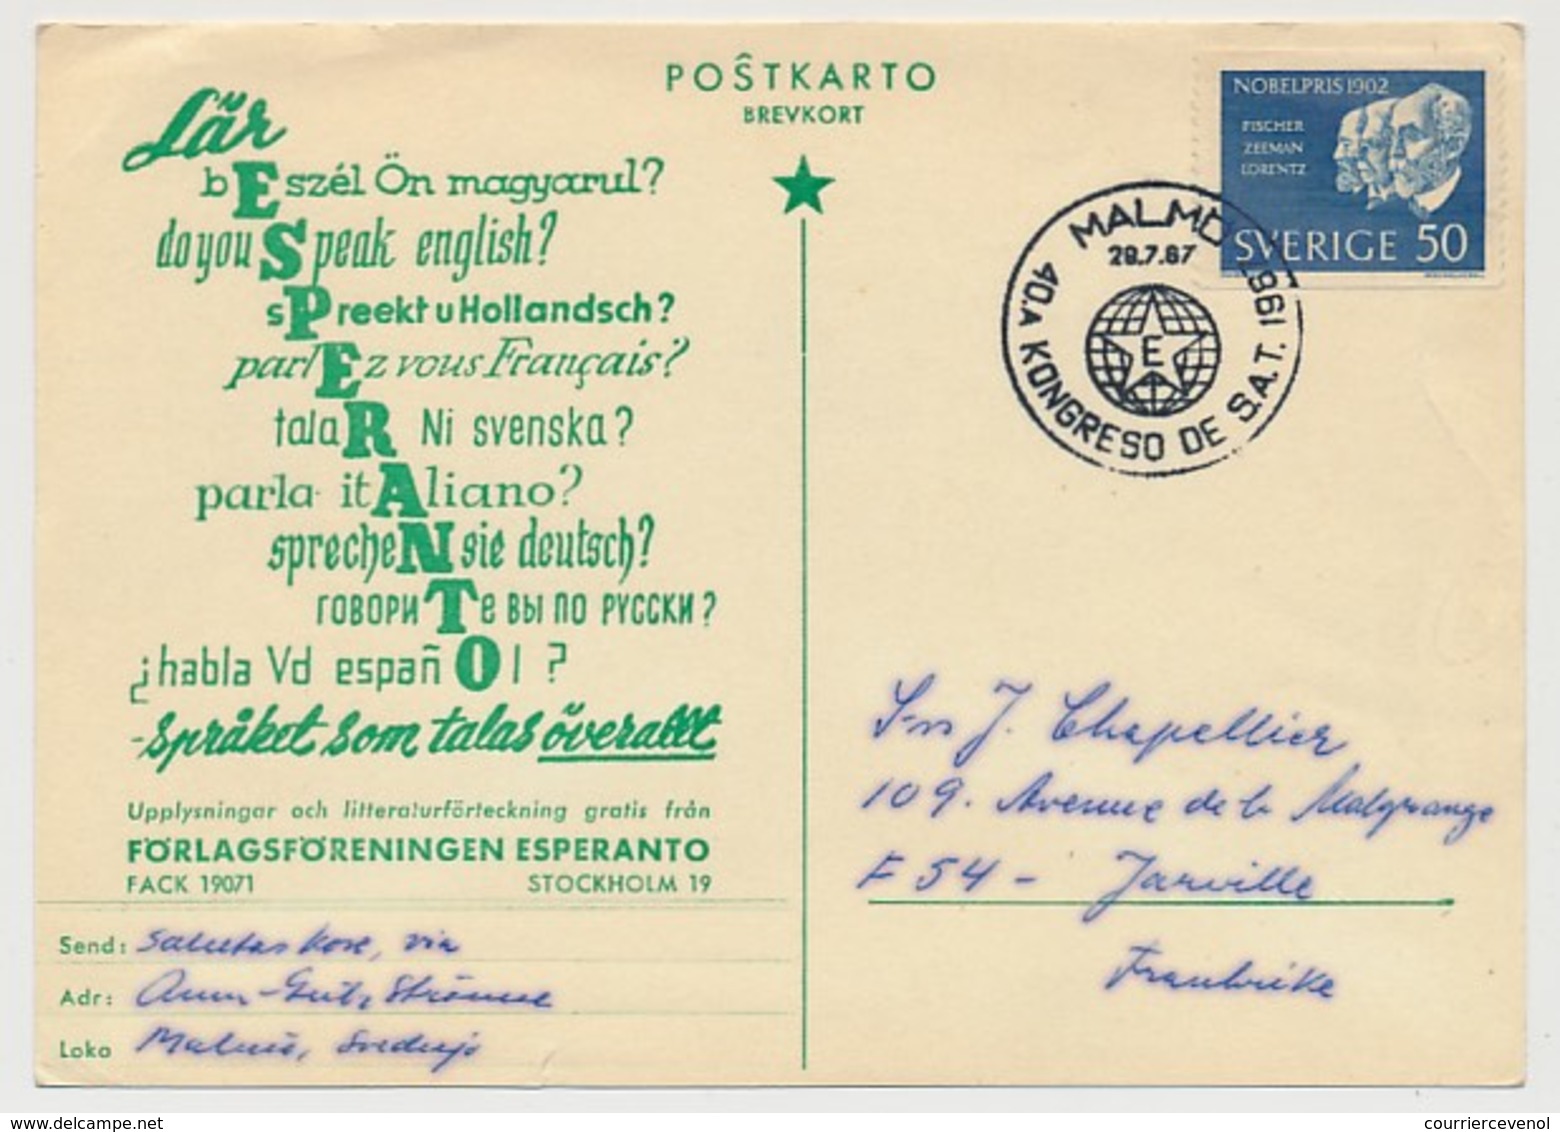 POŜTKARTO
BREVKORT
Lär
bEszél Ön magyarul?
do you Speak english?
sPreekt u Hollandsch?
parlEz vous Français?
talaR Ni svenska?
parla itAliano?
sprecheN sie deutsch?
говориTе вы по русски?
¿habla Vd españOl?
-språket som talas överallt
Upplysningar och litteraturförteckning gratis från
FÖRLAGSFÖRENINGEN ESPERANTO
FACK 19071 STOCKHOLM 19
Send: Salutas kore, via
Adr: Ann-Strömme
Loko Malmö, Svedujo
NOBELPRIS 1902
FISCHER
ZEEMAN
LORENTZ
SVERIGE 50
MALMÖ 1967
28.7.67
E
40.A KONGRESO DE S.A.T.
S-ro J. Chapellier
109. Avenue de la Malgrange
F 54 - Jarville
Frankrike
www.delcampe.net
courriercevenol